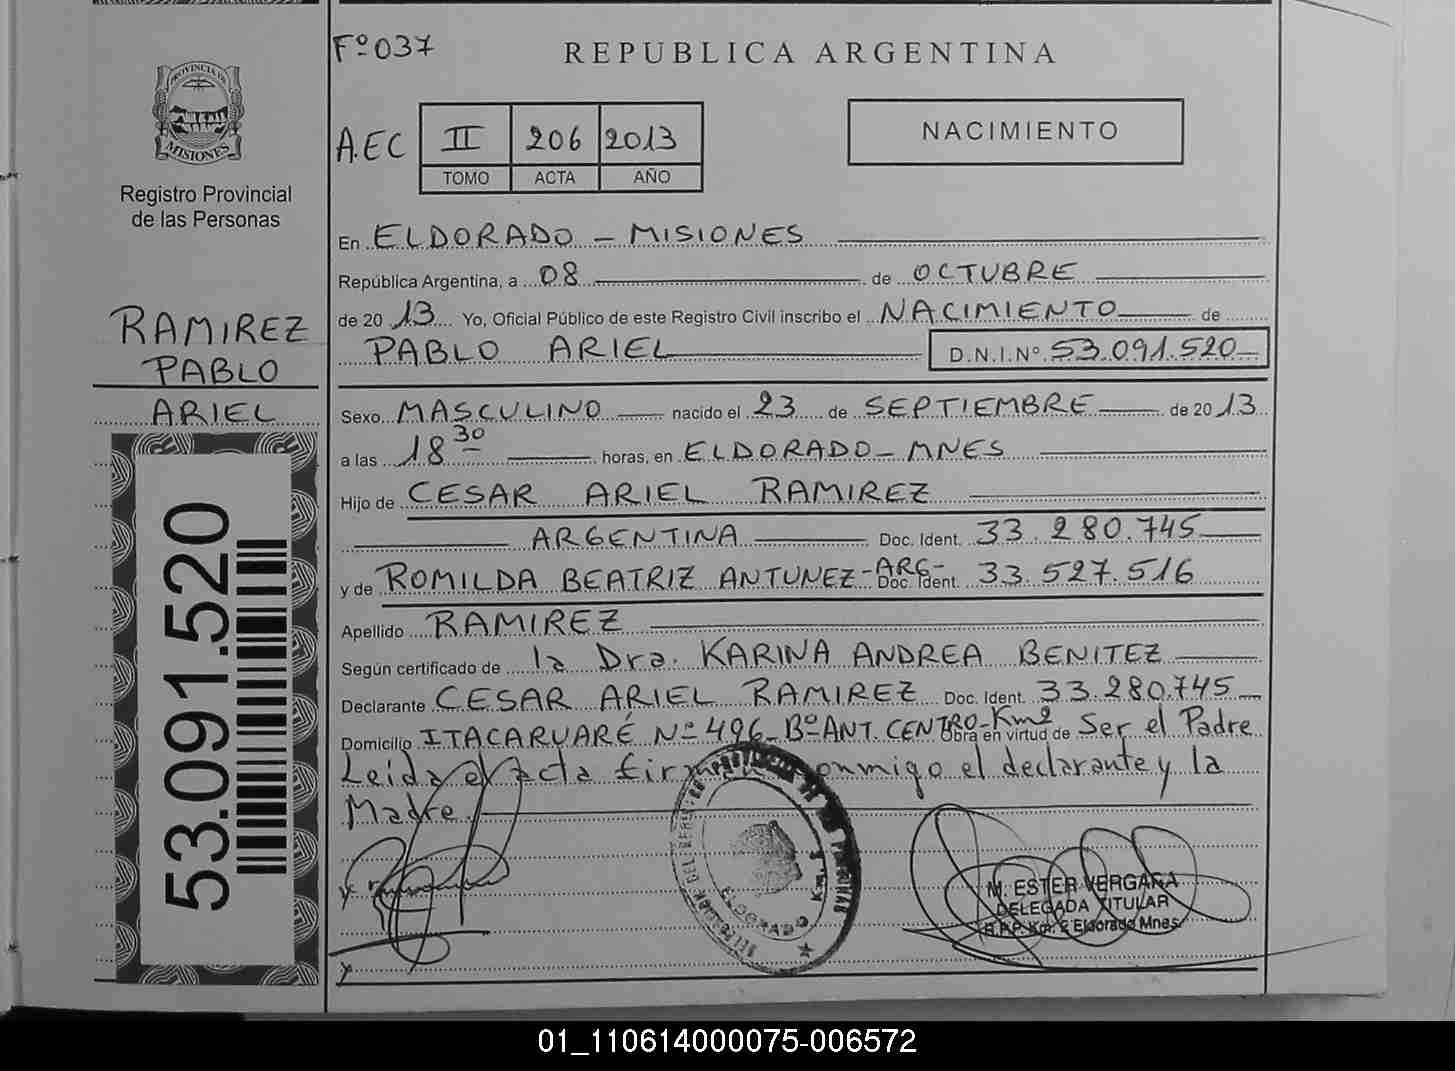 Fº 037
REPUBLICA ARGENTINA
PROVINCIA DE
MISIONES
Registro Provincial
de las Personas
A.EC II 206 2013
TOMO ACTA AÑO
NACIMIENTO
RAMIREZ
PABLO
ARIEL
53.091.520
En ELDORADO - MISIONES
República Argentina, a 08 de OCTUBRE
de 2013 Yo, Oficial Público de este Registro Civil inscribo el NACIMIENTO de
PABLO ARIEL D.N.I.Nº 53.091.520
Sexo MASCULINO nacido el 23 de SEPTIEMBRE de 2013
a las 18 30 horas, en ELDORADO - MNES
Hijo de CESAR ARIEL RAMIREZ
ARGENTINA Doc. Ident. 33.280.745
y de ROMILDA BEATRIZ ANTUNEZ -ARG- Doc. Ident. 33.527.516
Apellido RAMIREZ
Según certificado de la Dra. KARINA ANDREA BENITEZ
Declarante CESAR ARIEL RAMIREZ Doc. Ident. 33.280.745
Domicilio ITACARUARÉ Nº 496 - Bº ANT. CENTRO - Km2 Obra en virtud de Ser el Padre
Leída el acta firman conmigo el declarante y la
Madre
ELDORADO
M. ESTER VERGARA
DELEGADA TITULAR
R.P.P. Km. 2 Eldorado Mnes.
01_110614000075-006572